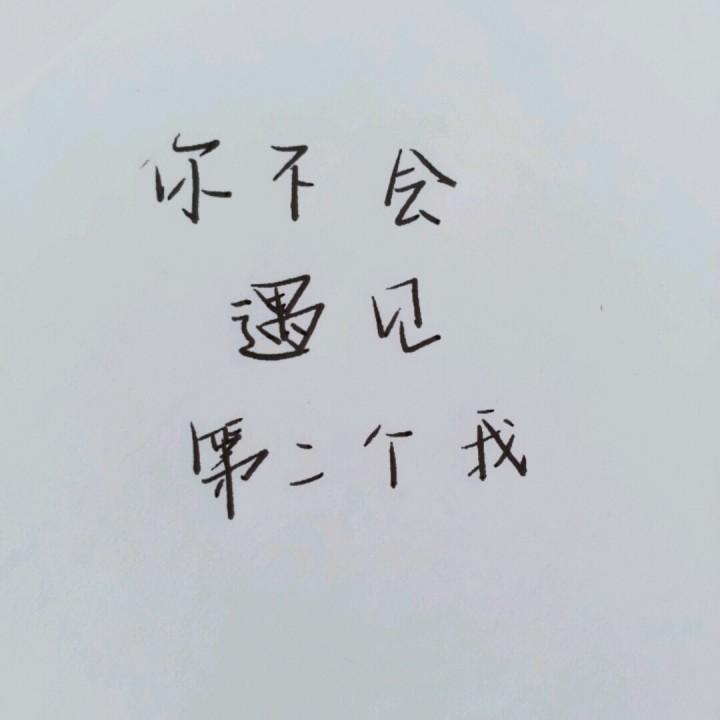 你不会
遇见
第二个我